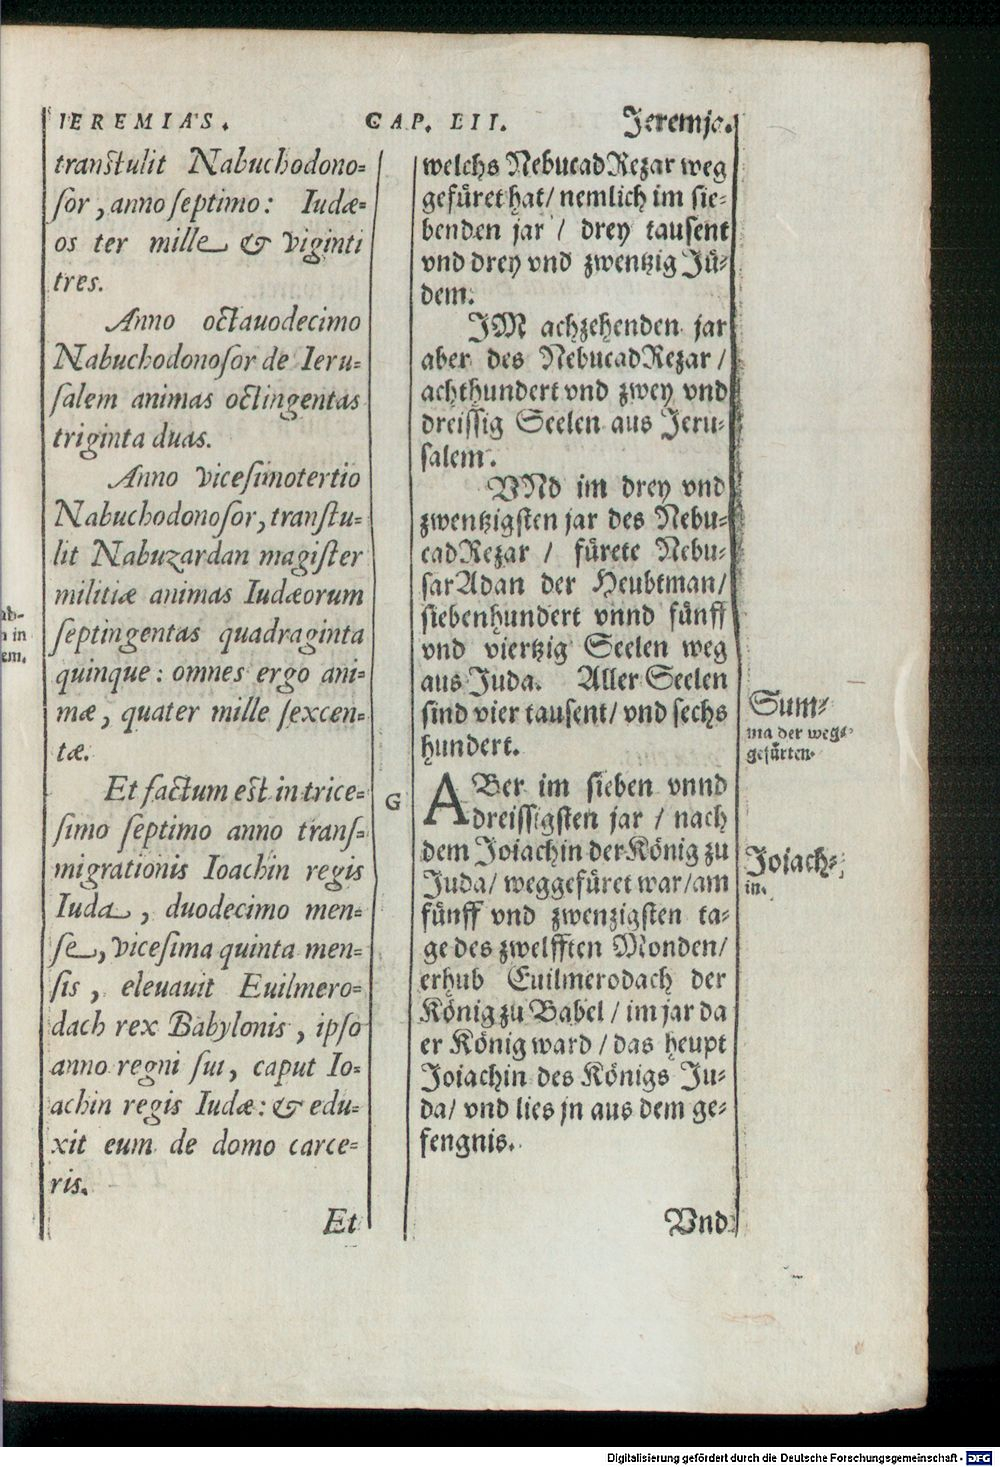 IEREMIAS. CAP. LII. Jeremja.
transtulit Nabuchodono-
sor, anno septimo: Iudæ-
os ter mille & viginti
tres.
Anno octauodecimo
Nabuchodonosor de Ieru-
salem animas octingentas
triginta duas.
Anno vicesimotertio
Nabuchodonosor, transtu-
lit Nabuzardan magister
militiæ animas Iudæorum
septingentas quadraginta
quinque: omnes ergo ani-
mæ, quater mille sexcen-
tæ.
Et factum est in trice-
simo septimo anno trans-
migrationis Ioachin regis
Iuda, duodecimo men-
se, vicesima quinta men-
sis, eleuauit Euilmero-
dach rex Babylonis, ipso
anno regni sui, caput Io-
achin regis Iudæ: & edu-
xit eum de domo carce-
ris.
Et
ab-
a in
em.
G
welchs NebucadRezar weg
gefüret hat/ nemlich im sie-
benden jar / drey tausent
vnd drey vnd zwentzig Jü-
dem.
JM achzehenden jar
aber des NebucadRezar /
achthundert vnd zwey vnd
dreissig Seelen aus Jeru-
salem.
VNd im drey vnd
zwentzigsten jar des Nebu-
cadRezar / fürete Nebu-
sarAdan der Heubtman/
siebenhundert vnnd fünff
vnd viertzig Seelen weg
aus Juda. Aller Seelen
sind vier tausent/ vnd sechs
hundert.
ABer im sieben vnnd
dreissigsten jar / nach
dem Joiachin der König zu
Juda/ weggefüret war/am
fünff vnd zwenzigsten ta-
ge des zwelfften Monden/
erhub Euilmerodach der
König zu Babel / im jar da
er König ward / das heupt
Joiachin des Königs Ju-
da/ vnd lies jn aus dem ge-
fengnis.
Vnd
Sum-
ma der weg-
gefürten.
Joiach-
in.
Digitalisierung gefördert durch die Deutsche Forschungsgemeinschaft - DFG